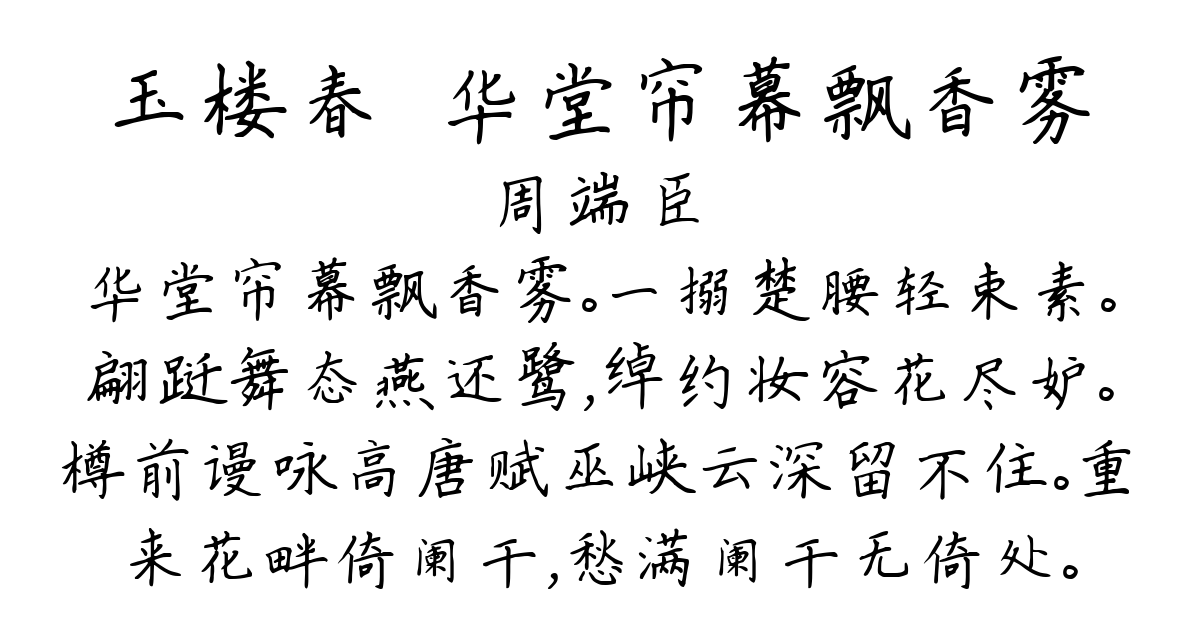 玉楼春 华堂帘幕飘香雾
周端臣
华堂帘幕飘香雾。一搦楚腰轻束素。
翩跹舞态燕还鹭,绰约妆容花尽妒。
樽前谩咏高唐赋巫峡云深留不住。重
来花畔倚阑干,愁满阑干无倚处。